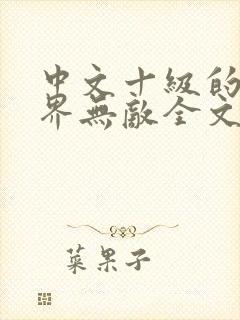 中文十級的
界無敵全文
菜果子